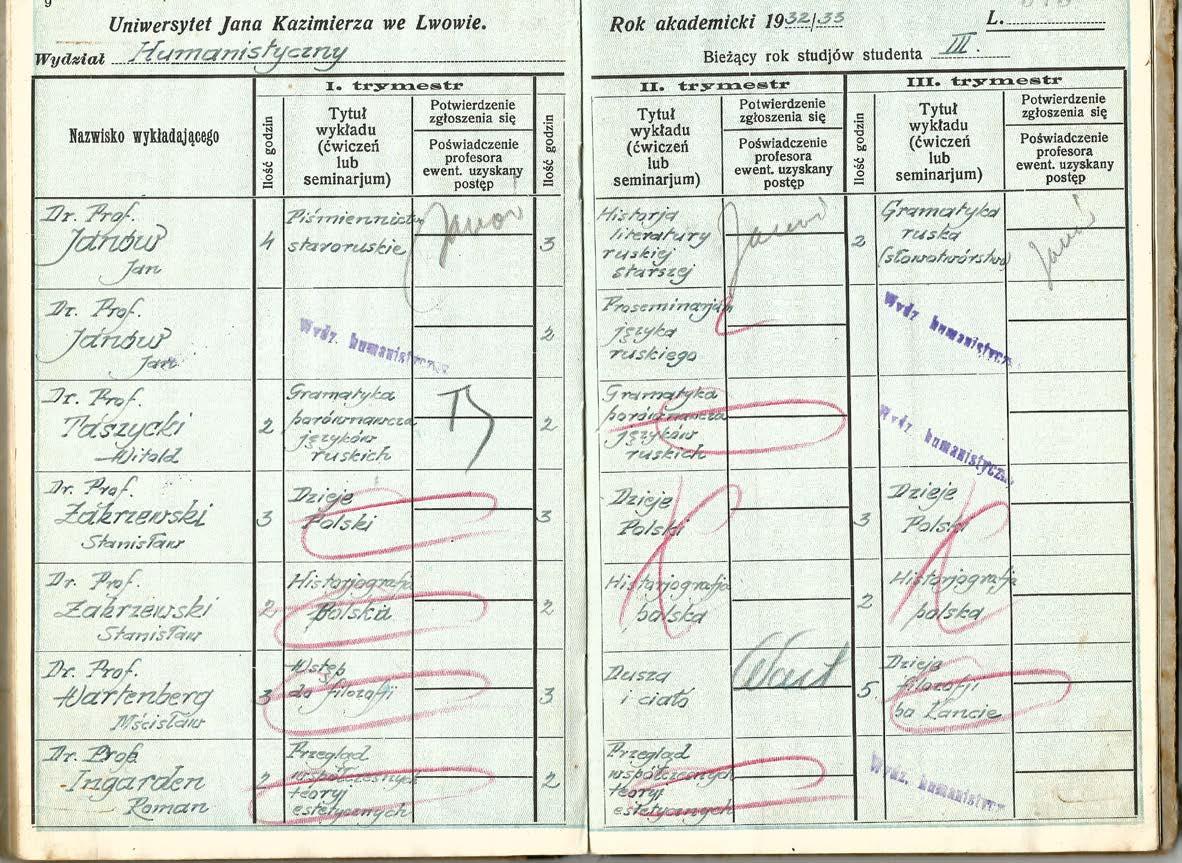 9
Uniwersytet Jana Kazimierza we Lwowie.
Rok akademicki 1932/33
L.
Wydział Humanistyczny
Bieżący rok studjów studenta III.
Nazwisko wykładającego
I. trymestr
Ilość godzin
Tytuł
wykładu
(ćwiczeń
lub
seminarjum)
Potwierdzenie
zgłoszenia się
Poświadczenie
profesora
ewent. uzyskany
postęp
Ilość godzin
II. trymestr
Tytuł
wykładu
(ćwiczeń
lub
seminarjum)
Potwierdzenie
zgłoszenia się
Poświadczenie
profesora
ewent. uzyskany
postęp
Ilość godzin
III. trymestr
Tytuł
wykładu
(ćwiczeń
lub
seminarjum)
Potwierdzenie
zgłoszenia się
Poświadczenie
profesora
ewent. uzyskany
postęp
Dr. Prof.
Janów
Jan
4
Piśmiennictwo
staroruskie
Janów
3
Historja
literatury
ruskiej
starszej
Janów
2
Gramatyka
ruska
(słowotwórstwo)
Janów
Dr. Prof.
Janów
Jan
Wydz. humanistyczny
2
Proseminarjum
języka
ruskiego
Wydz. humanistyczny
Dr. Prof.
Taszycki
Witold
2
Gramatyka
porównawcza
języków
ruskich
2
Gramatyka
porównawcza
języków
ruskich
Wydz. humanistyczny
Dr. Prof.
Zakrzewski
Stanisław
3
Dzieje
Polski
3
Dzieje
Polski
3
Dzieje
Polski
Dr. Prof.
Zakrzewski
Stanisław
2
Historjografja
polska
2
Historjografja
polska
2
Historjografja
polska
Dr. Prof.
Wartenberg
Mścisław
3
Wstęp
do filozofji
3
Dusza
i ciało
Wart
5
Dzieje
filozofji
po Kancie
Dr. Prof.
Ingarden
Roman
2
Przegląd
współczesnych
teoryj
estetycznych
2
Przegląd
współczesnych
teoryj
estetycznych
Wydz. humanistyczny